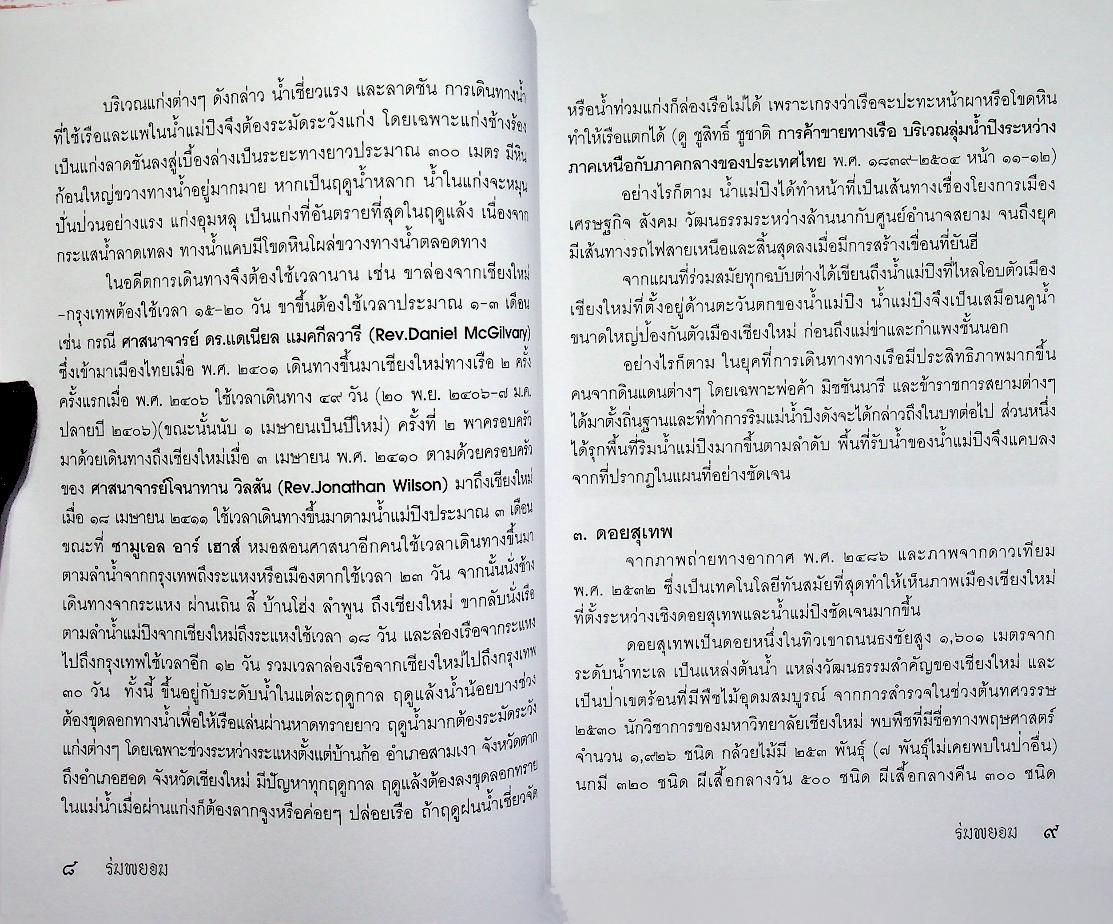 บริเวณแก่งต่างๆ ดังกล่าว น้ำเชี่ยวแรง และลาดชัน การเดินทางน้ำ
ที่ใช้เรือและแพในน้ำแม่ปิงจึงต้องระมัดระวังแก่ง โดยเฉพาะแก่งช้างร้อง
เป็นแก่งลาดชันลงสู่เบื้องล่างเป็นระยะทางยาวประมาณ ๓๐๐ เมตร มีหิน
ก้อนใหญ่ขวางทางน้ำอยู่มากมาย หากเป็นฤดูน้ำหลาก น้ำในแก่งจะหมุน
ปั่นป่วนอย่างแรง แก่งอุมหลุ เป็นแก่งที่อันตรายที่สุดในฤดูแล้ง เนื่องจาก
กระแสน้ำลาดเทลง ทางน้ำแคบมีโขดหินโผล่ขวางทางน้ำตลอดทาง
ในอดีตการเดินทางจึงต้องใช้เวลานาน เช่น ขาล่องจากเชียงใหม่
-กรุงเทพต้องใช้เวลา ๑๕-๒๐ วัน ขาขึ้นต้องใช้เวลาประมาณ ๑-๓ เดือน
เช่น กรณี ศาสนาจารย์ ดร.แดเนียล แมคกีลวารี (Rev.Daniel McGilvary)
ซึ่งเข้ามาเมืองไทยเมื่อ พ.ศ. ๒๔๐๑ เดินทางขึ้นมาเชียงใหม่ทางเรือ ๒ ครั้ง
ครั้งแรกเมื่อ พ.ศ. ๒๔๐๖ ใช้เวลาเดินทาง ๔๙ วัน (๒๐ พ.ย. ๒๔๐๖-๗ ม.ค.
ปลายปี ๒๔๐๖)(ขณะนั้นนับ ๑ เมษายนเป็นปีใหม่) ครั้งที่ ๒ พาครอบครัว
มาด้วยเดินทางถึงเชียงใหม่เมื่อ ๓ เมษายน พ.ศ. ๒๔๑๐ ตามด้วยครอบครัว
ของ ศาสนาจารย์โจนาทาน วิลสัน (Rev.Jonathan Wilson) มาถึงเชียงใหม่
เมื่อ ๑๘ เมษายน ๒๔๑๑ ใช้เวลาเดินทางขึ้นมาตามน้ำแม่ปิงประมาณ ๓ เดือน
ขณะที่ ซามูเอล อาร์ เฮาส์ หมอสอนศาสนาอีกคนใช้เวลาเดินทางขึ้นมา
ตามลำน้ำจากกรุงเทพถึงระแหงหรือเมืองตากใช้เวลา ๒๓ วัน จากนั้นนั่งช้าง
เดินทางจากระแหง ผ่านเถิน ลี้ บ้านโฮ่ง ลำพูน ถึงเชียงใหม่ ขากลับนั่งเรือ
ตามลำน้ำแม่ปิงจากเชียงใหม่ถึงระแหงใช้เวลา ๑๘ วัน และล่องเรือจากระแหง
ไปถึงกรุงเทพใช้เวลาอีก ๑๒ วัน รวมเวลาล่องเรือจากเชียงใหม่ไปถึงกรุงเทพ
๓๐ วัน ทั้งนี้ ขึ้นอยู่กับระดับน้ำในแต่ละฤดูกาล ฤดูแล้งน้ำน้อยบางช่วง
ต้องขุดลอกทางน้ำเพื่อให้เรือแล่นผ่านหาดทรายยาว ฤดูน้ำมากต้องระมัดระวัง
แก่งต่างๆ โดยเฉพาะช่วงระหว่างระแหงตั้งแต่บ้านก้อ อำเภอสามเงา จังหวัดตาก
ถึงอำเภอฮอด จังหวัดเชียงใหม่ มีปัญหาทุกฤดูกาล ฤดูแล้งต้องลงขุดลอกทราย
ในแม่น้ำเมื่อผ่านแก่งก็ต้องลากจูงหรือค่อยๆ ปล่อยเรือ ถ้าฤดูฝนน้ำเชี่ยวจัด
๘ ร่มพยอม
หรือน้ำท่วมแก่งก็ล่องเรือไม่ได้ เพราะเกรงว่าเรือจะปะทะหน้าผาหรือโขดหิน
ทำให้เรือแตกได้ (ดู ชูสิทธิ์ ชูชาติ การค้าขายทางเรือ บริเวณลุ่มน้ำปิงระหว่าง
ภาคเหนือกับภาคกลางของประเทศไทย พ.ศ. ๑๘๓๙-๒๕๐๔ หน้า ๑๑-๑๒)
อย่างไรก็ตาม น้ำแม่ปิงได้ทำหน้าที่เป็นเส้นทางเชื่องโยงการเมือง
เศรษฐกิจ สังคม วัฒนธรรมระหว่างล้านนากับศูนย์อำนาจสยาม จนถึงยุค
มีเส้นทางรถไฟสายเหนือและสิ้นสุดลงเมื่อมีการสร้างเขื่อนที่ยันฮี
จากแผนที่ร่วมสมัยทุกฉบับต่างได้เขียนถึงน้ำแม่ปิงที่ไหลโอบตัวเมือง
เชียงใหม่ที่ตั้งอยู่ด้านตะวันตกของน้ำแม่ปิง น้ำแม่ปิงจึงเป็นเสมือนคูน้ำ
ขนาดใหญ่ป้องกันตัวเมืองเชียงใหม่ ก่อนถึงแม่ข่าและกำแพงชั้นนอก
อย่างไรก็ตาม ในยุคที่การเดินทางทางเรือมีประสิทธิภาพมากขึ้น
คนจากดินแดนต่างๆ โดยเฉพาะพ่อค้า มิชชันนารี และข้าราชการสยามต่างๆ
ได้มาตั้งถิ่นฐานและที่ทำการริมแม่น้ำปิงดังจะได้กล่าวถึงในบทต่อไป ส่วนหนึ่ง
ได้รุกพื้นที่ริมน้ำแม่ปิงมากขึ้นตามลำดับ พื้นที่รับน้ำของน้ำแม่ปิงจึงแคบลง
จากที่ปรากฏในแผนที่อย่างชัดเจน
๓. ดอยสุเทพ
จากภาพถ่ายทางอากาศ พ.ศ. ๒๔๘๖ และภาพจากดาวเทียม
พ.ศ. ๒๕๓๒ ซึ่งเป็นเทคโนโลยีทันสมัยที่สุดทำให้เห็นภาพเมืองเชียงใหม่
ที่ตั้งระหว่างเชิงดอยสุเทพและน้ำแม่ปิงชัดเจนมากขึ้น
ดอยสุเทพเป็นดอยหนึ่งในทิวเขาถนนธงชัยสูง ๑,๖๐๑ เมตรจาก
ระดับน้ำทะเล เป็นแหล่งต้นน้ำ แหล่งวัฒนธรรมสำคัญของเชียงใหม่ และ
เป็นป่าเขตร้อนที่มีพืชไม้อุดมสมบูรณ์ จากการสำรวจในช่วงต้นทศวรรษ
๒๕๓๐ นักวิชาการของมหาวิทยาลัยเชียงใหม่ พบพืชที่มีชื่อทางพฤษศาสตร์
จำนวน ๑,๙๒๖ ชนิด กล้วยไม้มี ๒๕๓ พันธุ์ (๗ พันธุ์ไม่เคยพบในป่าอื่น)
นกมี ๓๒๐ ชนิด ผีเสื้อกลางวัน ๕๐๐ ชนิด ผีเสื้อกลางคืน ๓๐๐ ชนิด
ร่มพยอม ๙